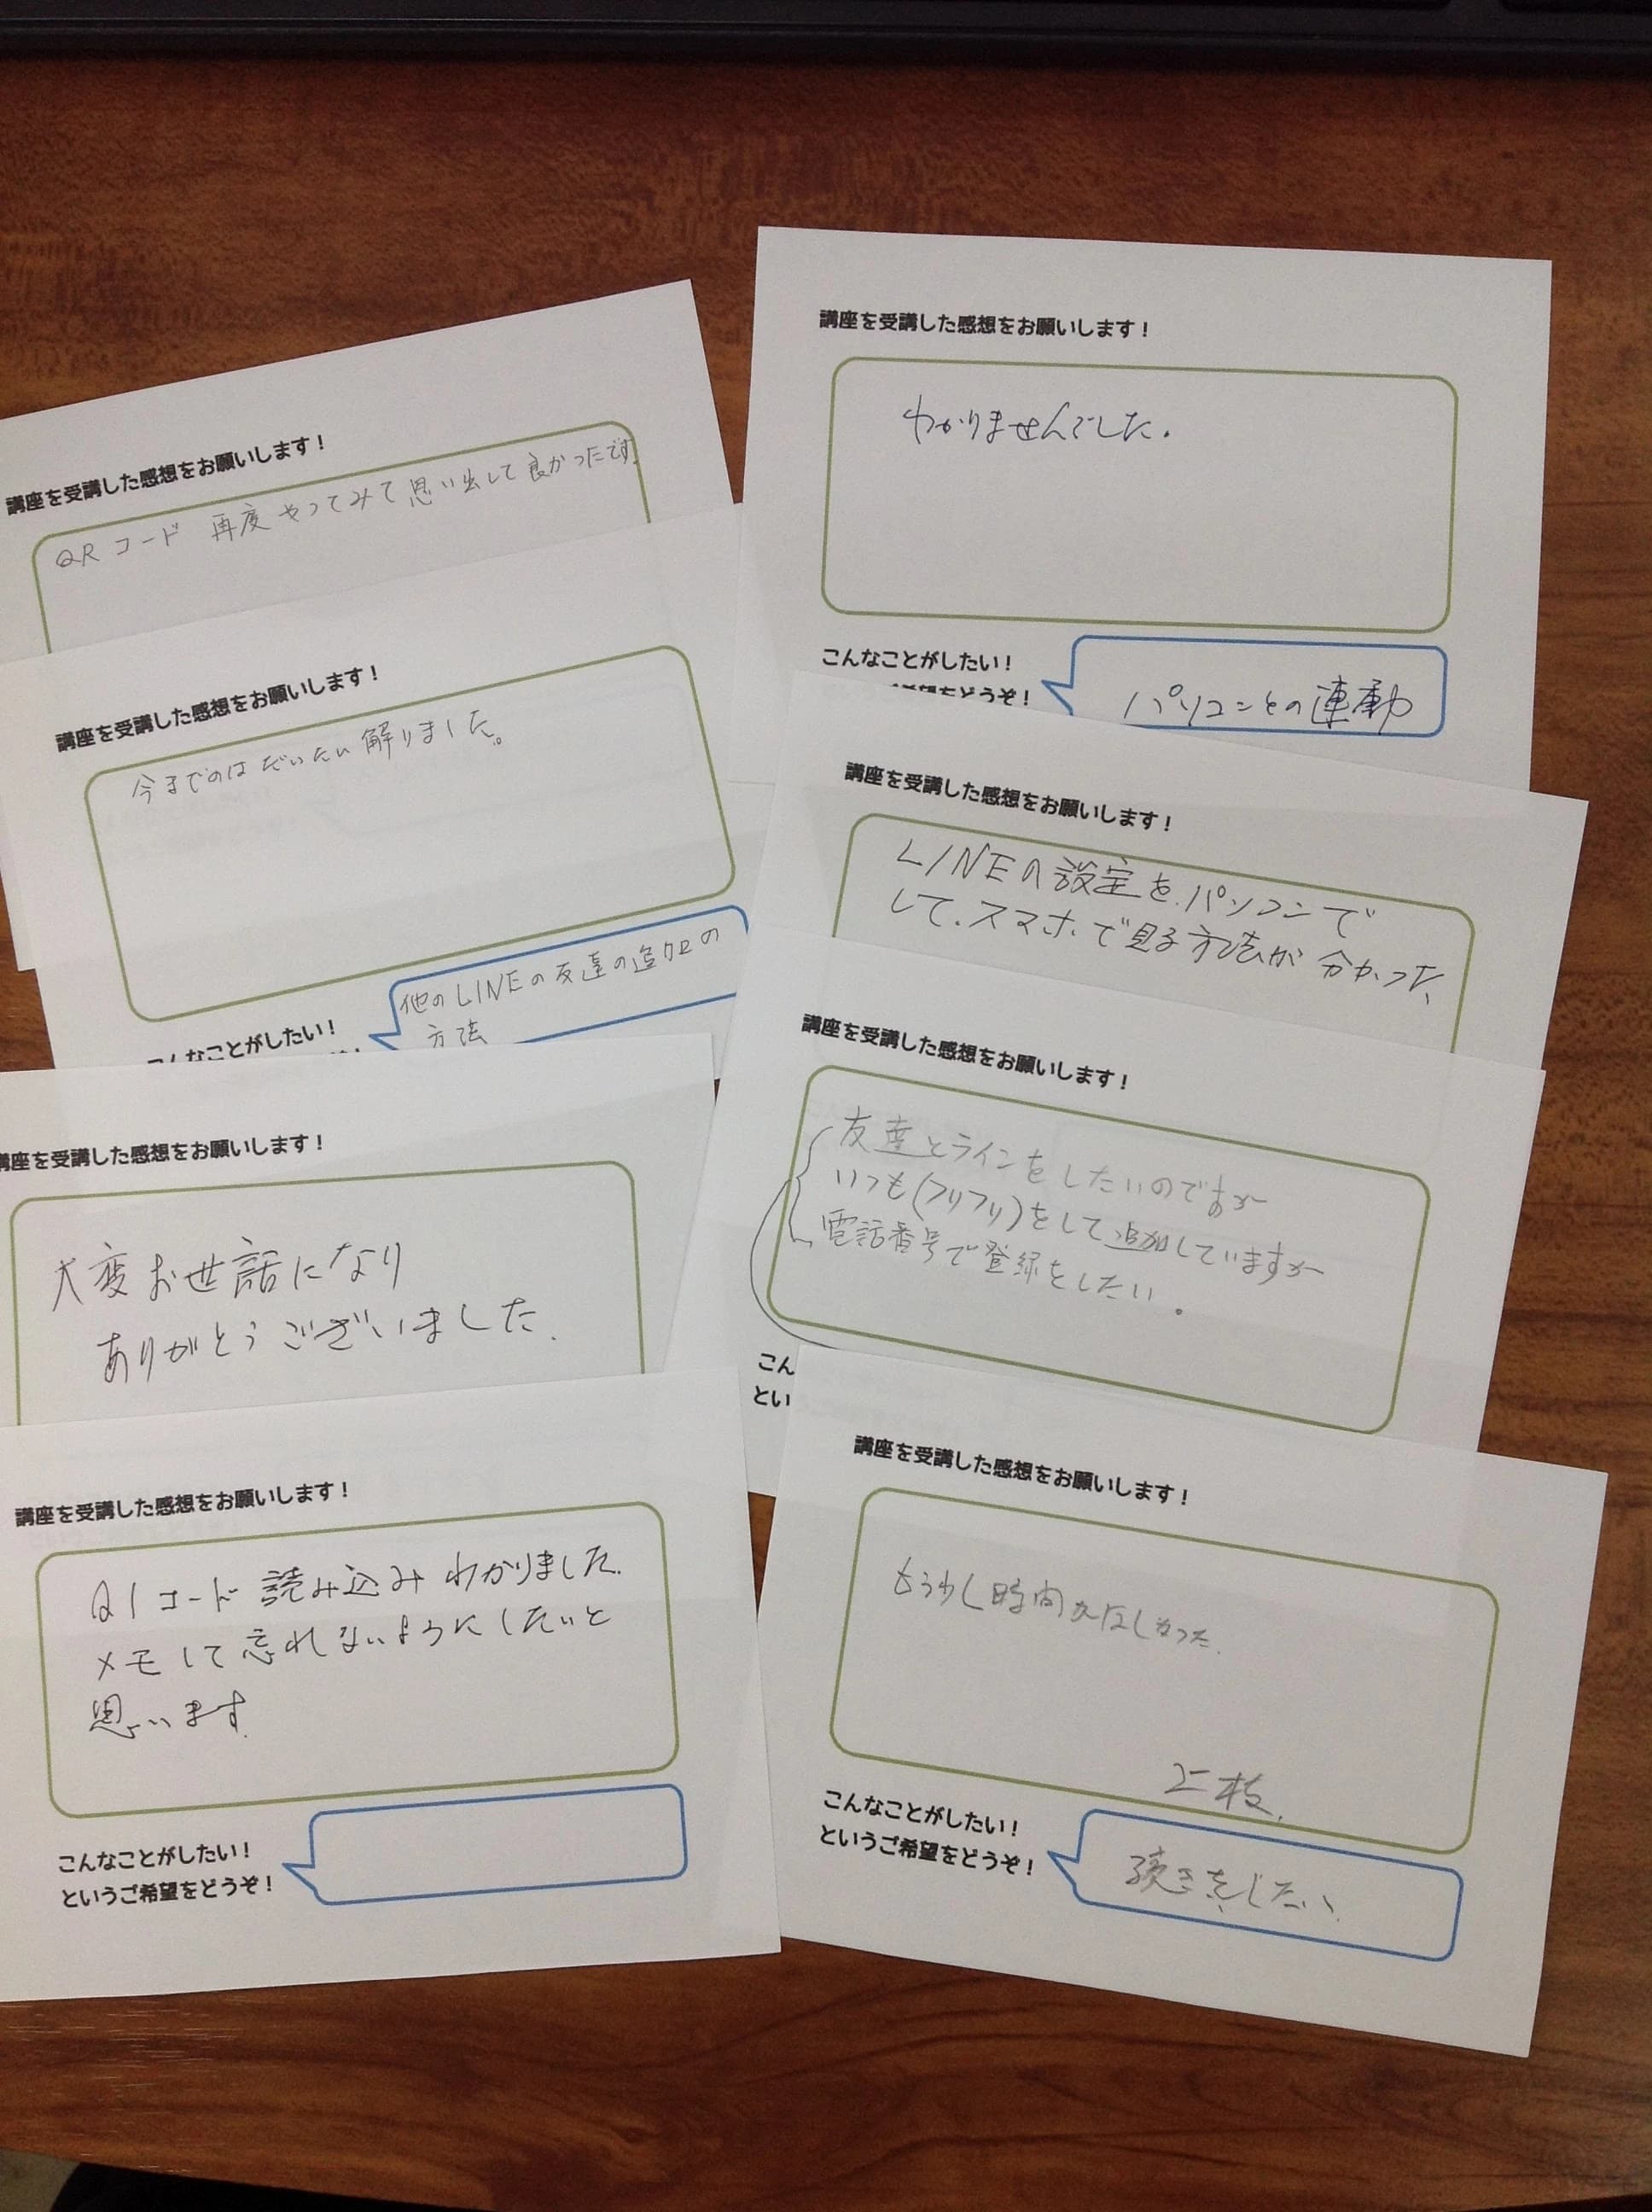 講座を受講した感想をお願いします！
QRコード 再度やってみて思い出して良かったです。
講座を受講した感想をお願いします！
今までのはだいたい解りました。
こんなことがしたい！
他のLINEの友達の追加の
方法
講座を受講した感想をお願いします！
大変お世話になり
ありがとうございました.
講座を受講した感想をお願いします！
QIコード 読み込みわかりました.
メモして忘れないようにしたいと
思います.
こんなことがしたい！
というご希望をどうぞ！
講座を受講した感想をお願いします！
わかりませんでした.
こんなことがしたい！
希望をどうぞ！
パソコンとの連動
講座を受講した感想をお願いします！
LINEの設定を、パソコンで
して、スマホで見る方法が分かった、
講座を受講した感想をお願いします！
友達とラインをしたいのですが
いつも(フリフリ)をして追加していますが
電話番号で登録をしたい。
こん
とい
講座を受講した感想をお願いします！
もう少し時間がほしかった.
こんなことがしたい！
というご希望をどうぞ！
続きをしたい.